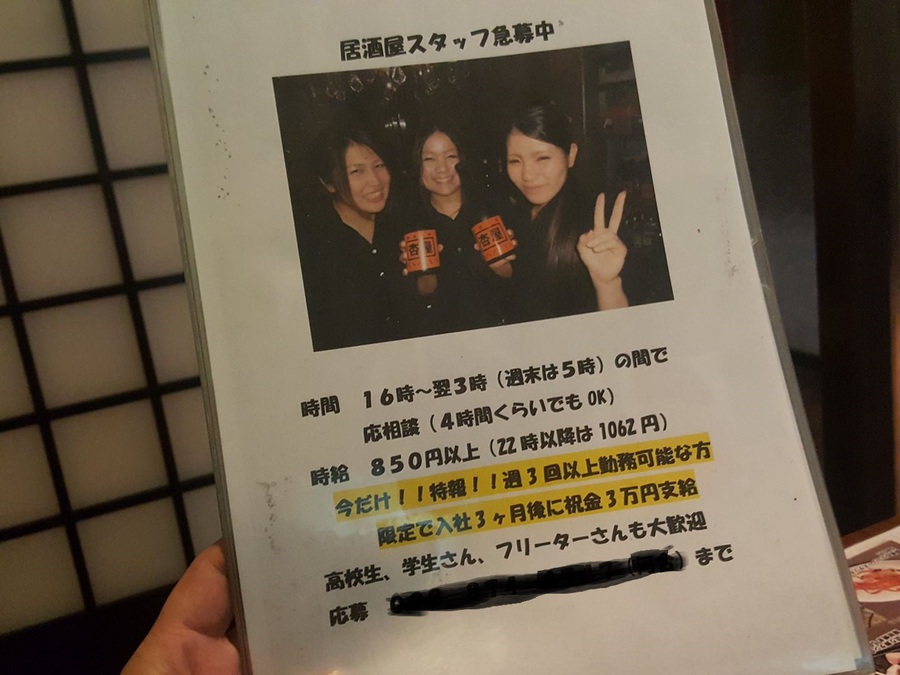 居酒屋スタッフ急募中
杏屋
杏屋
時間 16時～翌3時（週末は5時）の間で
応相談（4時間くらいでもOK）
時給 850円以上（22時以降は1062円）
今だけ！！特報！！週3回以上勤務可能な方
限定で入社3ヶ月後に祝金3万円支給
高校生、学生さん、フリーターさんも大歓迎
応募 まで